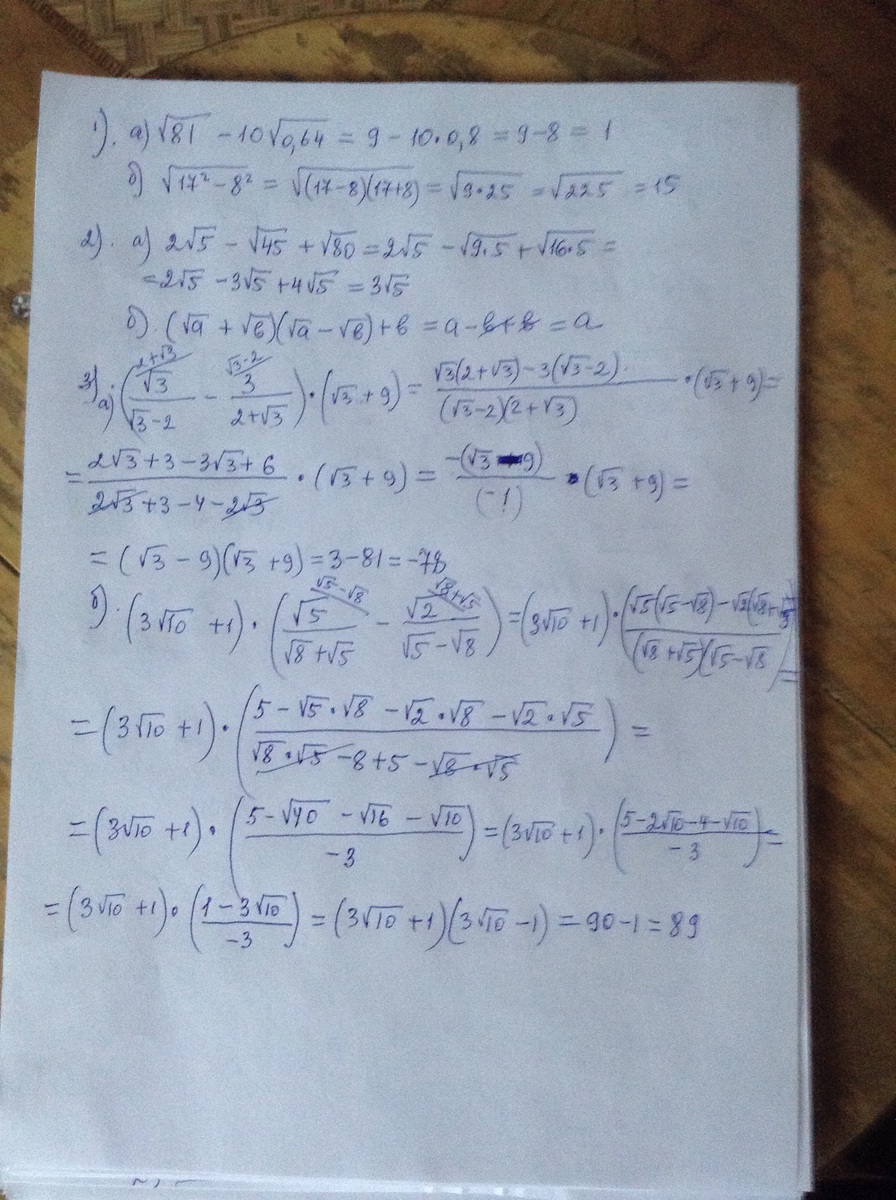 1). а) √81 − 10√0,64 = 9 − 10·0,8 = 9−8 = 1
б) √17² − 8² = √(17−8)(17+8) = √9·25 = √225 = 15
2). а) 2√5 − √45 + √80 = 2√5 − √9·5 + √16·5 =
= 2√5 − 3√5 + 4√5 = 3√5
б). (√a + √в)(√a − √в) + в = a − в + в = a
3) а) (√3/(√3−2) ^(2+√3) − 3/(2+√3) ^(√3−2)) · (√3 + 9) = (√3(2+√3) − 3(√3−2))/((√3−2)(2+√3)) · (√3 + 9) =
= (2√3 + 3 − 3√3 + 6)/(2√3 + 3 − 4 − 2√3) · (√3 + 9) = −(√3 − 9)/(−1) · (√3 + 9) =
= (√3 − 9)(√3 + 9) = 3 − 81 = −78
б). (3√10 + 1) · (√5/(√8 + √5) ^(√5−√8) − √2/(√5 − √8) ^(√8+√5)) = (3√10 + 1) · (√5(√5−√8) − √2(√8+√5)/(√8+√5)(√5−√8) =
= (3√10 + 1) · ((5 − √5·√8 − √2·√8 − √2·√5)/(√8·√5 − 8 + 5 − √8·√5)) =
= (3√10 + 1) · ((5 − √40 − √16 − √10)/−3) = (3√10 + 1) · ((5 − 2√10 − 4 − √10)/−3) =
= (3√10 + 1) · ((1 − 3√10)/−3) = (3√10 + 1)(3√10 − 1) = 90 − 1 = 89